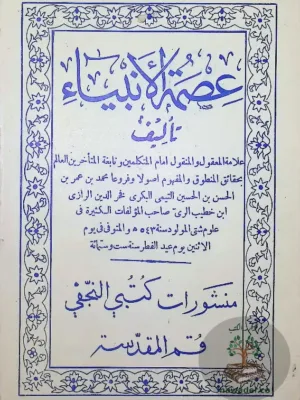 عصمة الأنبياء
تأليف
علامة المعقول والمنقول امام المتكلمين ونابغة المتأخرين العالم
بحقائق المنطوق والمفهوم اصولا وفروعا محمد بن عمر بن
الحسن بن الحسين التيمى البكرى فخر الدين الرازى
ابن خطيب الرى صاحب المؤلفات الكثيرة فى
علوم شتى المولود سنة ٥٤٣ هـ والمتوفى فى يوم
الاثنين يوم عيد الفطر سنة ست وستمائة
منشورات كتبي النجفي
قم المقدسة